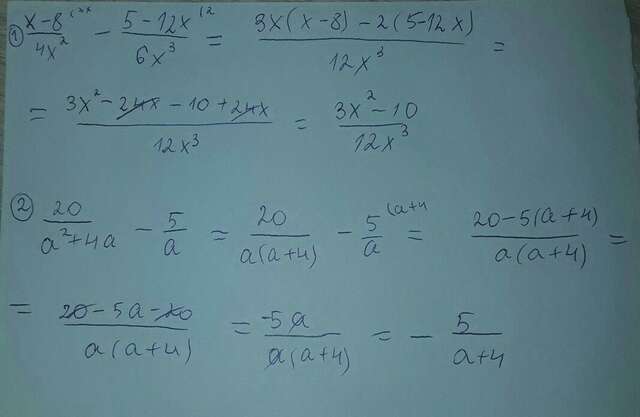 ① (x-8)/(4x²) (3x - (5-12x)/(6x³) (2 = (3x(x-8)-2(5-12x))/(12x³) =
= (3x²-24x-10+24x)/(12x³) = (3x²-10)/(12x³)
② 20/(a²+4a) - 5/a = 20/(a(a+4)) - 5/a (a+4 = (20-5(a+4))/(a(a+4)) =
= (20-5a-20)/(a(a+4)) = -5a/(a(a+4)) = - 5/(a+4)